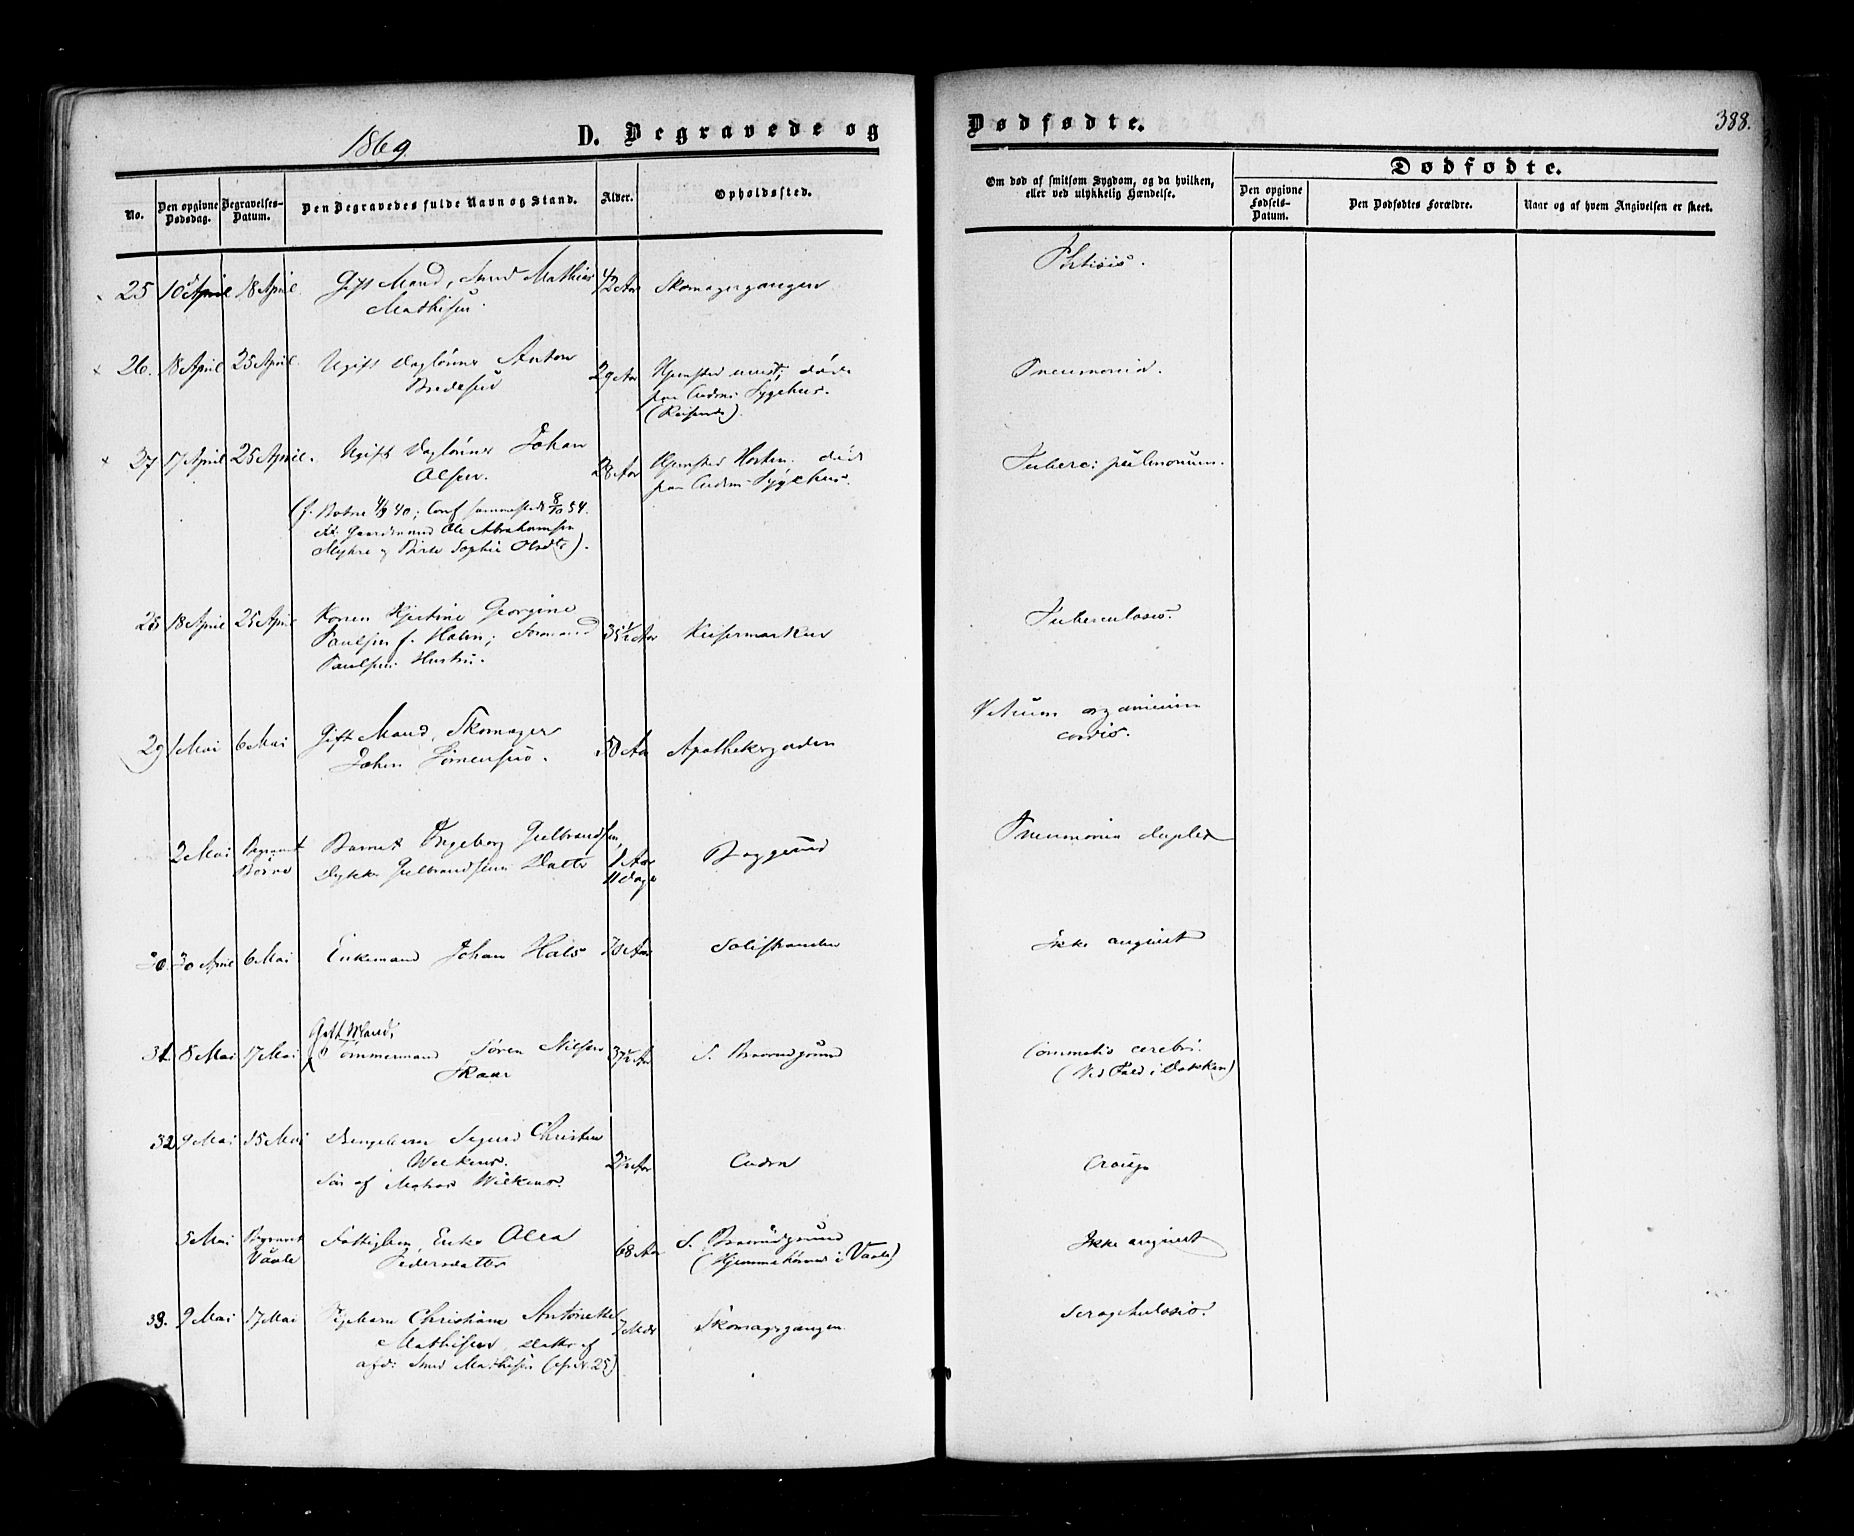 1869
D. Begravede og
Dødfødte.
388.
No.
Den opgivne Dødsdag.
Begravelses-Datum.
Den Begravedes fulde Navn og Stand.
Alder.
Opholdssted.
Om død af smitsom Sygdom, og da hvilken, eller ved ulykkelig Hændelse.
Dødfødte.
Den opgivne Fødsels-Datum.
Den Dødfødtes Forældre.
Naar og af hvem Angivelsen er skeet.
25 10 April 18 April. Gift Mand, Smed Mathias 42 Aar Skomagergangen Phtisis.
Mathisen.
26. 18 April 25 April. Ugift Daglønner Anton 29 Aar Hjemsted døde Pneumonia.
Bredesen paa Sygehus.
27 17 April 25 April. Ugift Daglønner Johan 28 Aar Hjemsted Horten. døde Tuberc: pulmonum.
Olsen. paa Sygehus.
(f. Botne 40; Conf sammesteds 8/10 54.
Gaardmand Ole Abrahamsen
Myhre Sophie Olsdtr).
28 18 April 25 April Karen Hjertine Georgine 35½ Aar Keisermarken Tuberculosis.
Paulsen f. Holm;
Paulsens Hustru.
29 1 Mai 6 Mai Gift Mand, Skomager 50 Aar Apothekergaden Vitium organicum
Johan Sørensen. cordis.
2 Mai Begravet Barnet Ingeborg Gulbrandsen, 1 Aar Baggerud Pneumonia duplex
Borre Gulbrandsens Datter 11 Dage
30. 30 April 6 Mai Enkemand Johan Hals Aar Solistranden Ikke angivet
Gift Mand;
31. 8 Mai 17 Mai Tømmermand Søren Nilsen 37½ Aar S. Braarudgrund Commotio cerebri.
Skaar (Ved Fald i Dokken)
32 9 Mai 15 Mai Drengebarn Sigurd Christian 2½ Aar Croup
Wilkens.
Søn af Wilkens.
5 Mai Begravet Fattiglem, Enke Olea 68 Aar S. Braarudgrund Ikke angivet
Vaale Pedersdatter (Hjemmehørende i Vaale)
33. 9 Mai 17 Mai Pigebarn Christiane Antonette 7 Mdr Skomagergangen. Scrophulosis.
Mathisen Datter af
afd: Smed Mathisen (cfr. 25)